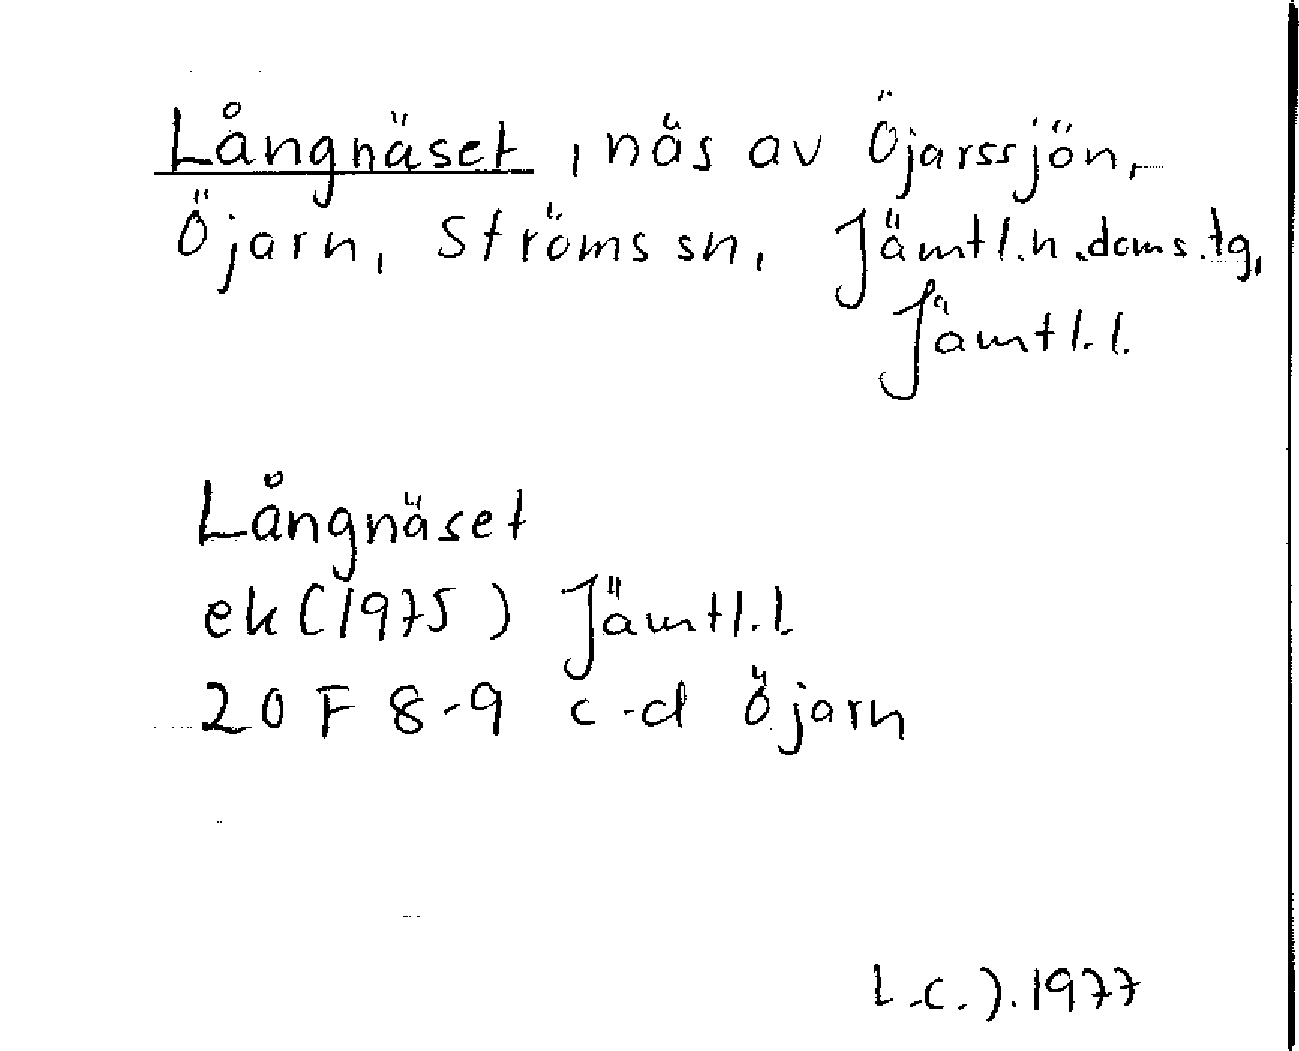 Långnäset, näs av Öjarssjön,
Öjarn, Ströms sn, Jämtl.n.doms.tg,
Jämtl.l.
Långnäset
ek(1975) Jämtl.l.
20 F 8-9 c-d Öjarn
L.C.J.1977